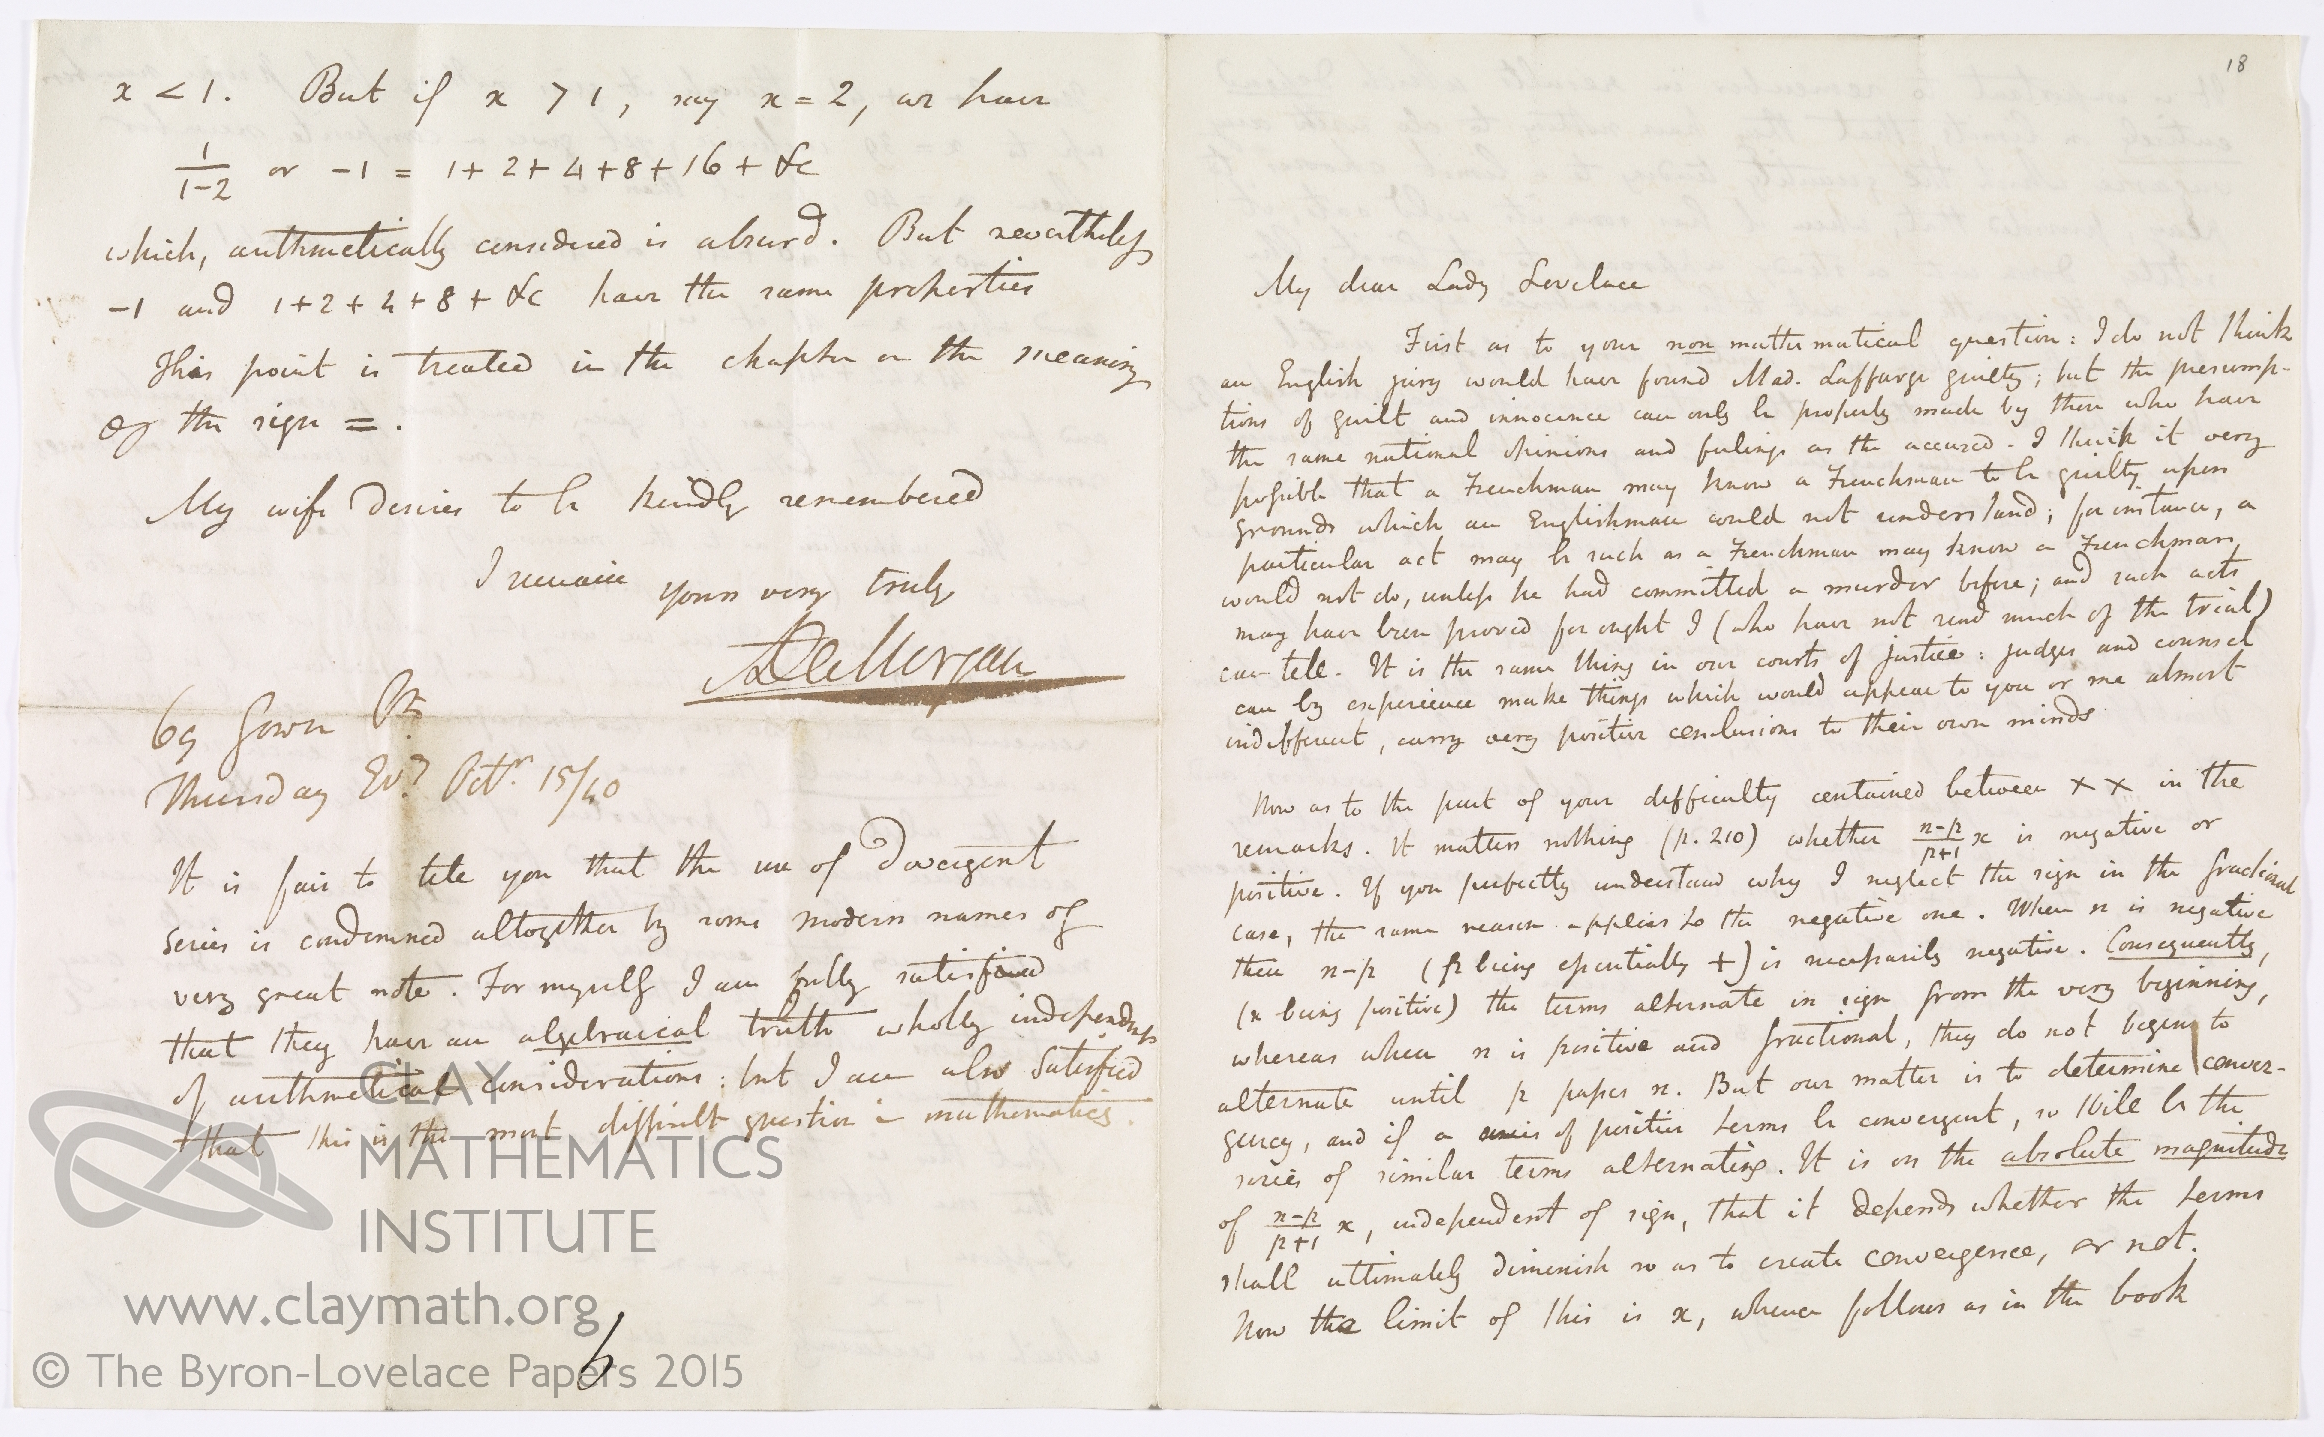 x < 1. But if x > 1, say x = 2, we have
1/(1-2) or -1 = 1+2+4+8+16+&c
which, arithmetically considered is absurd. But nevertheless
-1 and 1+2+4+8+&c have the same properties
This point is treated in the chapter on the meaning
of the sign =.
My wife desires to be kindly remembered
I remain yours very truly
ADeMorgan
69 Gower St.
Thursday Evg. Octr. 15/40
It is fair to tell you that the use of divergent
series is condemned altogether by some modern names of
very great note. For myself I am fully satisfied
that they have an algebraical truth wholly independent
of arithmetical considerations: but I am also satisfied
that this is the most difficult question in mathematics.
6
CLAY
MATHEMATICS
INSTITUTE
www.claymath.org
© The Byron-Lovelace Papers 2015
18
My dear Lady Lovelace
First as to your non mathematical question: I do not think
an English jury would have found Mad. Laffarge guilty; but the presump-
tions of guilt and innocence can only be properly made by those who have
the same national opinions and feelings as the accused. I think it very
possible that a Frenchman may know a Frenchman to be guilty upon
grounds which an Englishman would not understand; for instance, a
particular act may be such as a Frenchman may know a Frenchman
would not do, unless he had committed a murder before; and such acts
may have been proved for ought I (who have not read much of the trial)
can tell. It is the same thing in our courts of justice: judges and counsel
can by experience make things which would appear to you or me almost
indifferent, carry very positive conclusions to their own minds
Now as to the part of your difficulty contained between × × in the
remarks. It matters nothing (p. 210) whether (n-p)/(p+1) x is negative or
positive. If you perfectly understand why I neglect the sign in the fractional
case, the same reason applies to the negative one. When n is negative
then n-p (p being essentially +) is necessarily negative. Consequently,
(x being positive) the terms alternate in sign from the very beginning,
whereas when n is positive and fractional, they do not begin to
alternate until p passes n. But our matter is to determine conver-
gency, and if a series of positive terms be convergent, so will be the
series of similar terms alternating. It is on the absolute magnitude
of (n-p)/(p+1) x, independent of sign, that it depends whether the terms
shall ultimately diminish so as to create convergence, or not.
Now the limit of this is x, whence follows as in the book